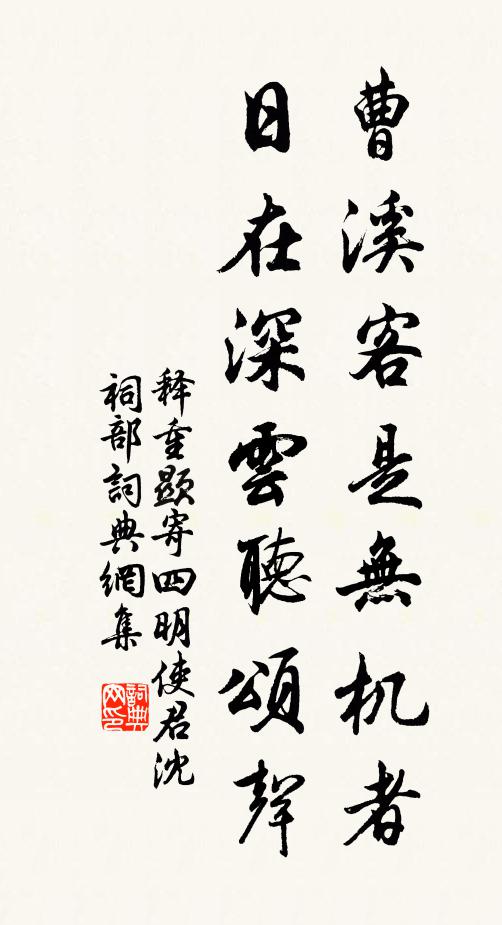 曹溪客是無机者
日在深雲聽頌聲
释重顯寄四明使君沈
祠部詞典網集
詞典網印